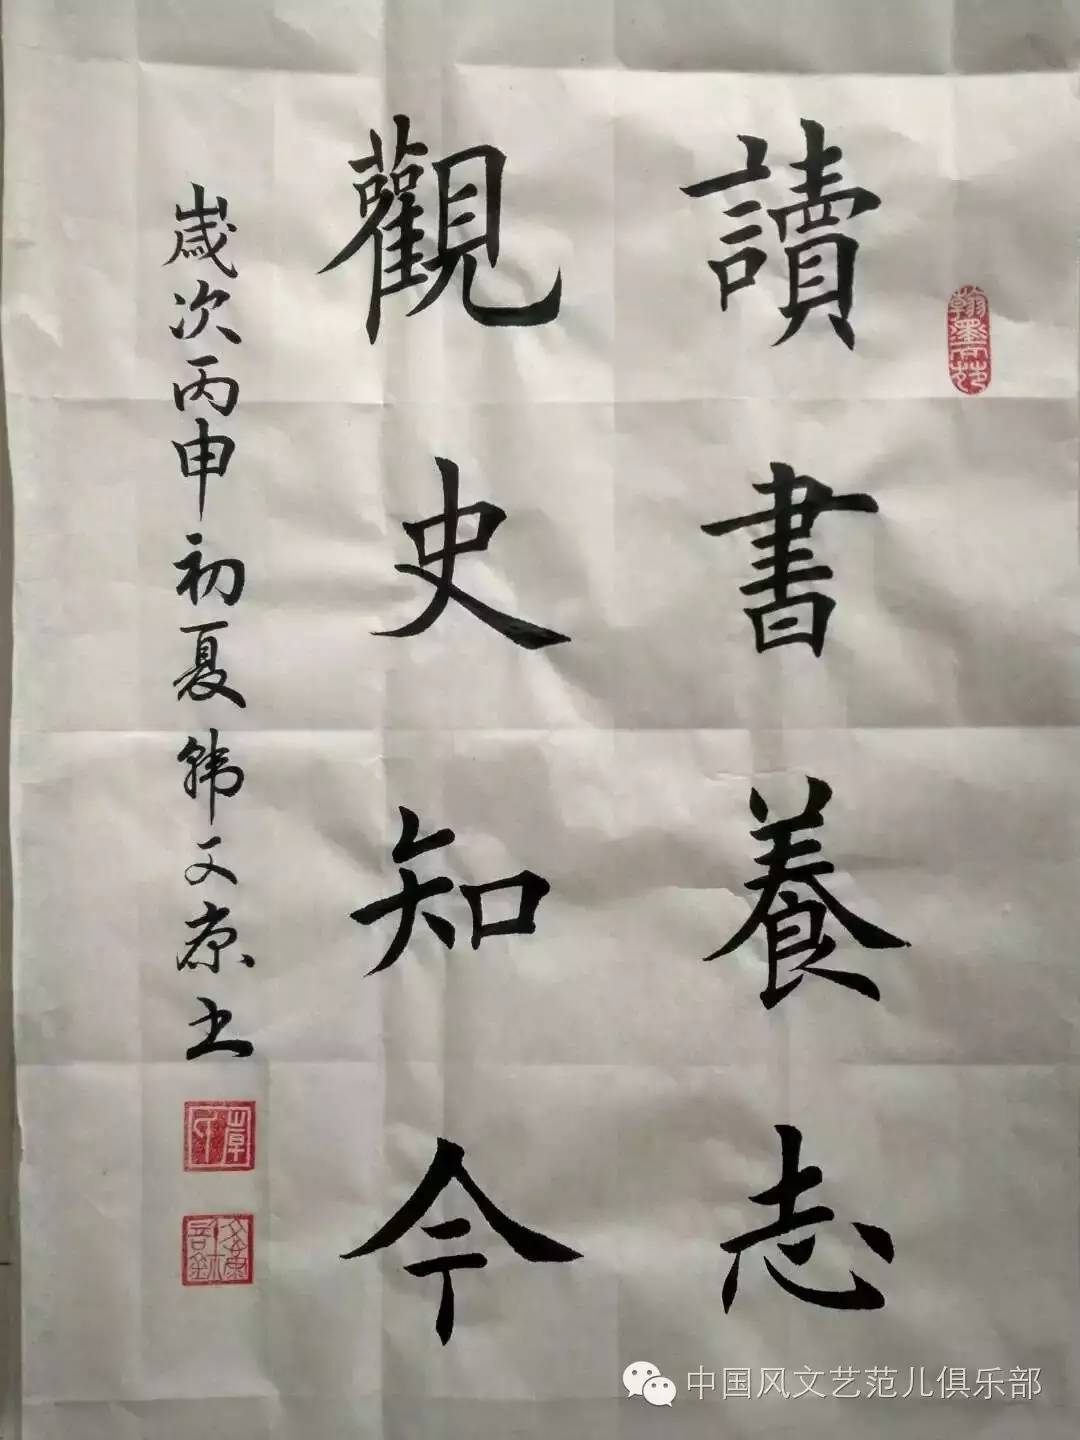 讀書養志
觀史知今
歲次丙申初夏韩文京书
翰墨
中国风文艺范儿俱乐部